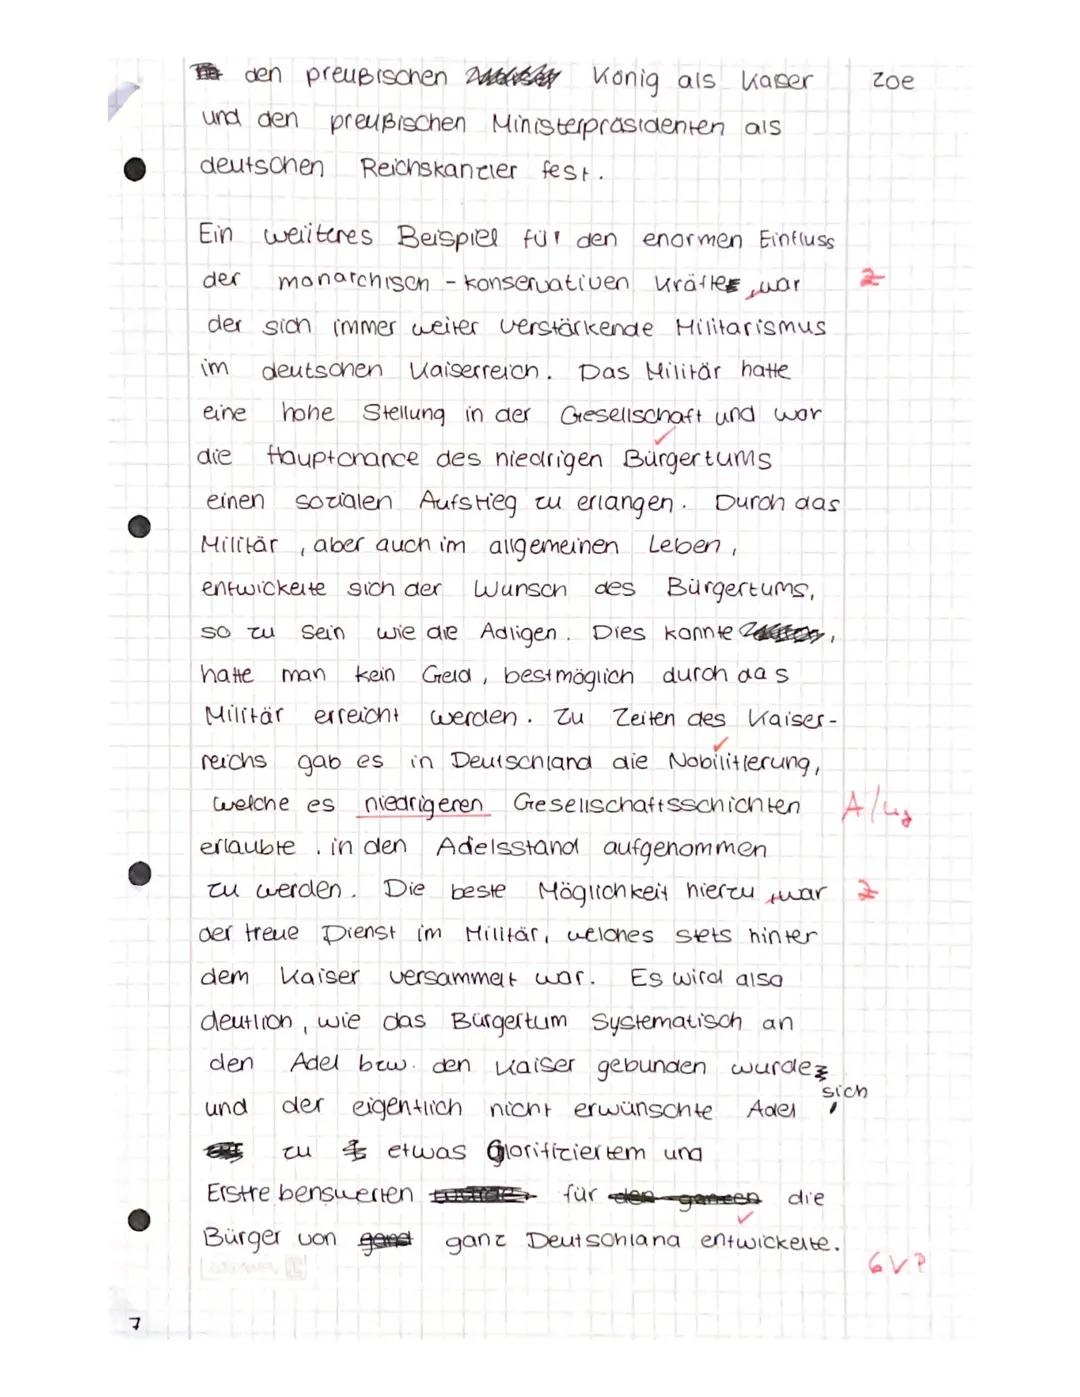 den preußischen König als Kaiser zoe
und den preußischen Ministerpräsidenten als
deutschen Reichskanzler fest.
Ein weiiteres Beispiel für den enormen Einfluss
der monarchisch - konservativen Kräfte war Z
der sich immer weiter verstärkende Militarismus
im deutschen Kaiserreich. Das Militär hatte
eine hohe Stellung in der Gesellschaft und war
die Hauptchance des niedrigen Bürgertums
einen sozialen Aufstieg zu erlangen. Durch das
Militär, aber auch im allgemeinen Leben,
entwickelte sich der Wunsch des Bürgertums,
so zu sein wie die Adligen. Dies konnte,
hatte man kein Geld, bestmöglich durch das
Militär erreicht werden. Zu Zeiten des Kaiser-
reichs gab es in Deutschland die Nobilitierung,
welche es niedrigeren Gesellschaftsschichten A/
erlaubte, in den Adelsstand aufgenommen
zu werden. Die beste Möglichkeit hierzu war Z
der treue Dienst im Militär, welches stets hinter
dem Kaiser versammelt war. Es wird also
deutlich, wie das Bürgertum systematisch an
den Adel bzw. den Kaiser gebunden wurde
und der eigentlich nicht erwünschte Adel, sich
zu etwas Glorifiziertem und
Erstrebenswerten für die
Bürger von ganz Deutschland entwickelte.
6V?
7